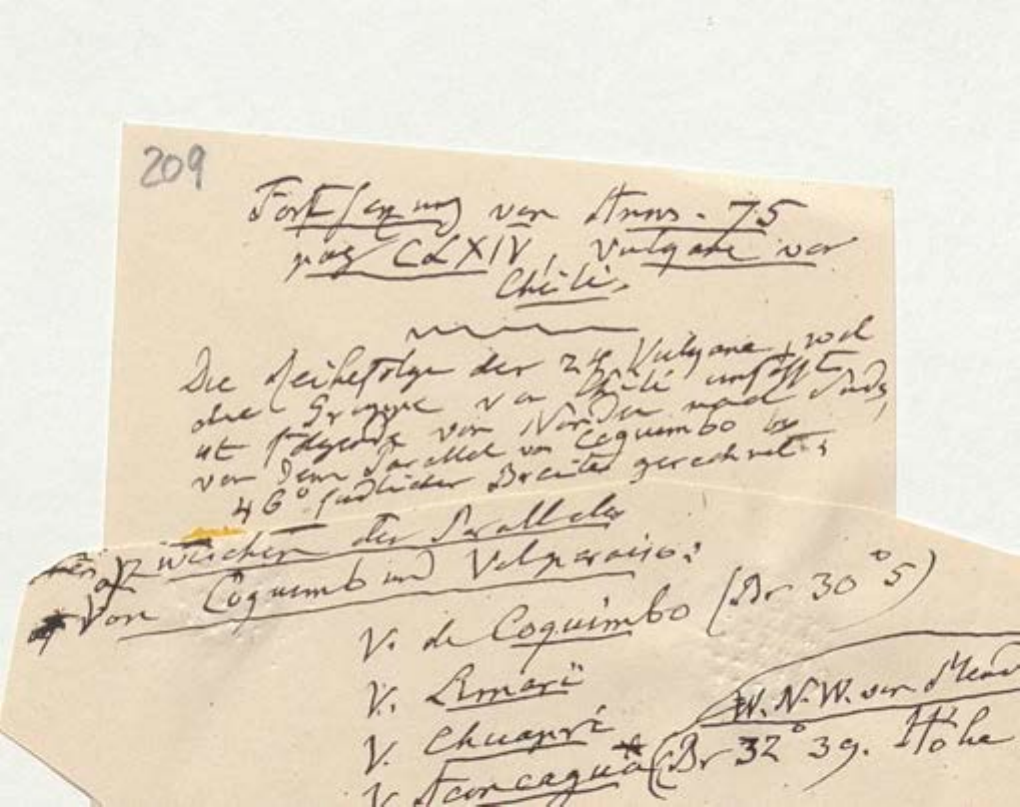 209
Fortsezung von Anm. 75
pag CLXIV, Vulgane von
Chili.
Die Reihefolge der 24 Vulgane, welche
die Gruppe von Chili umfasst
ist folgende von Norden nach Süden,
von dem Parallel von Coquimbo bis
46° südlicher Breite gerechnet:
a) zwischen den Parallelen
von Coquimbo und Valparaiso:
V. de Coquimbo (Br 30°5)
V. Limari
V. Chuapri
W.N.W. von
V. Aconcagua* (Br 32°39. Höhe